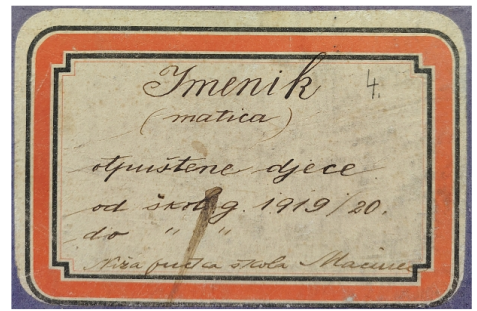 Imenik 4.
(matica)
otpuštene djece
od škol. g. 1919/20.
do " "
Niža pučka škola